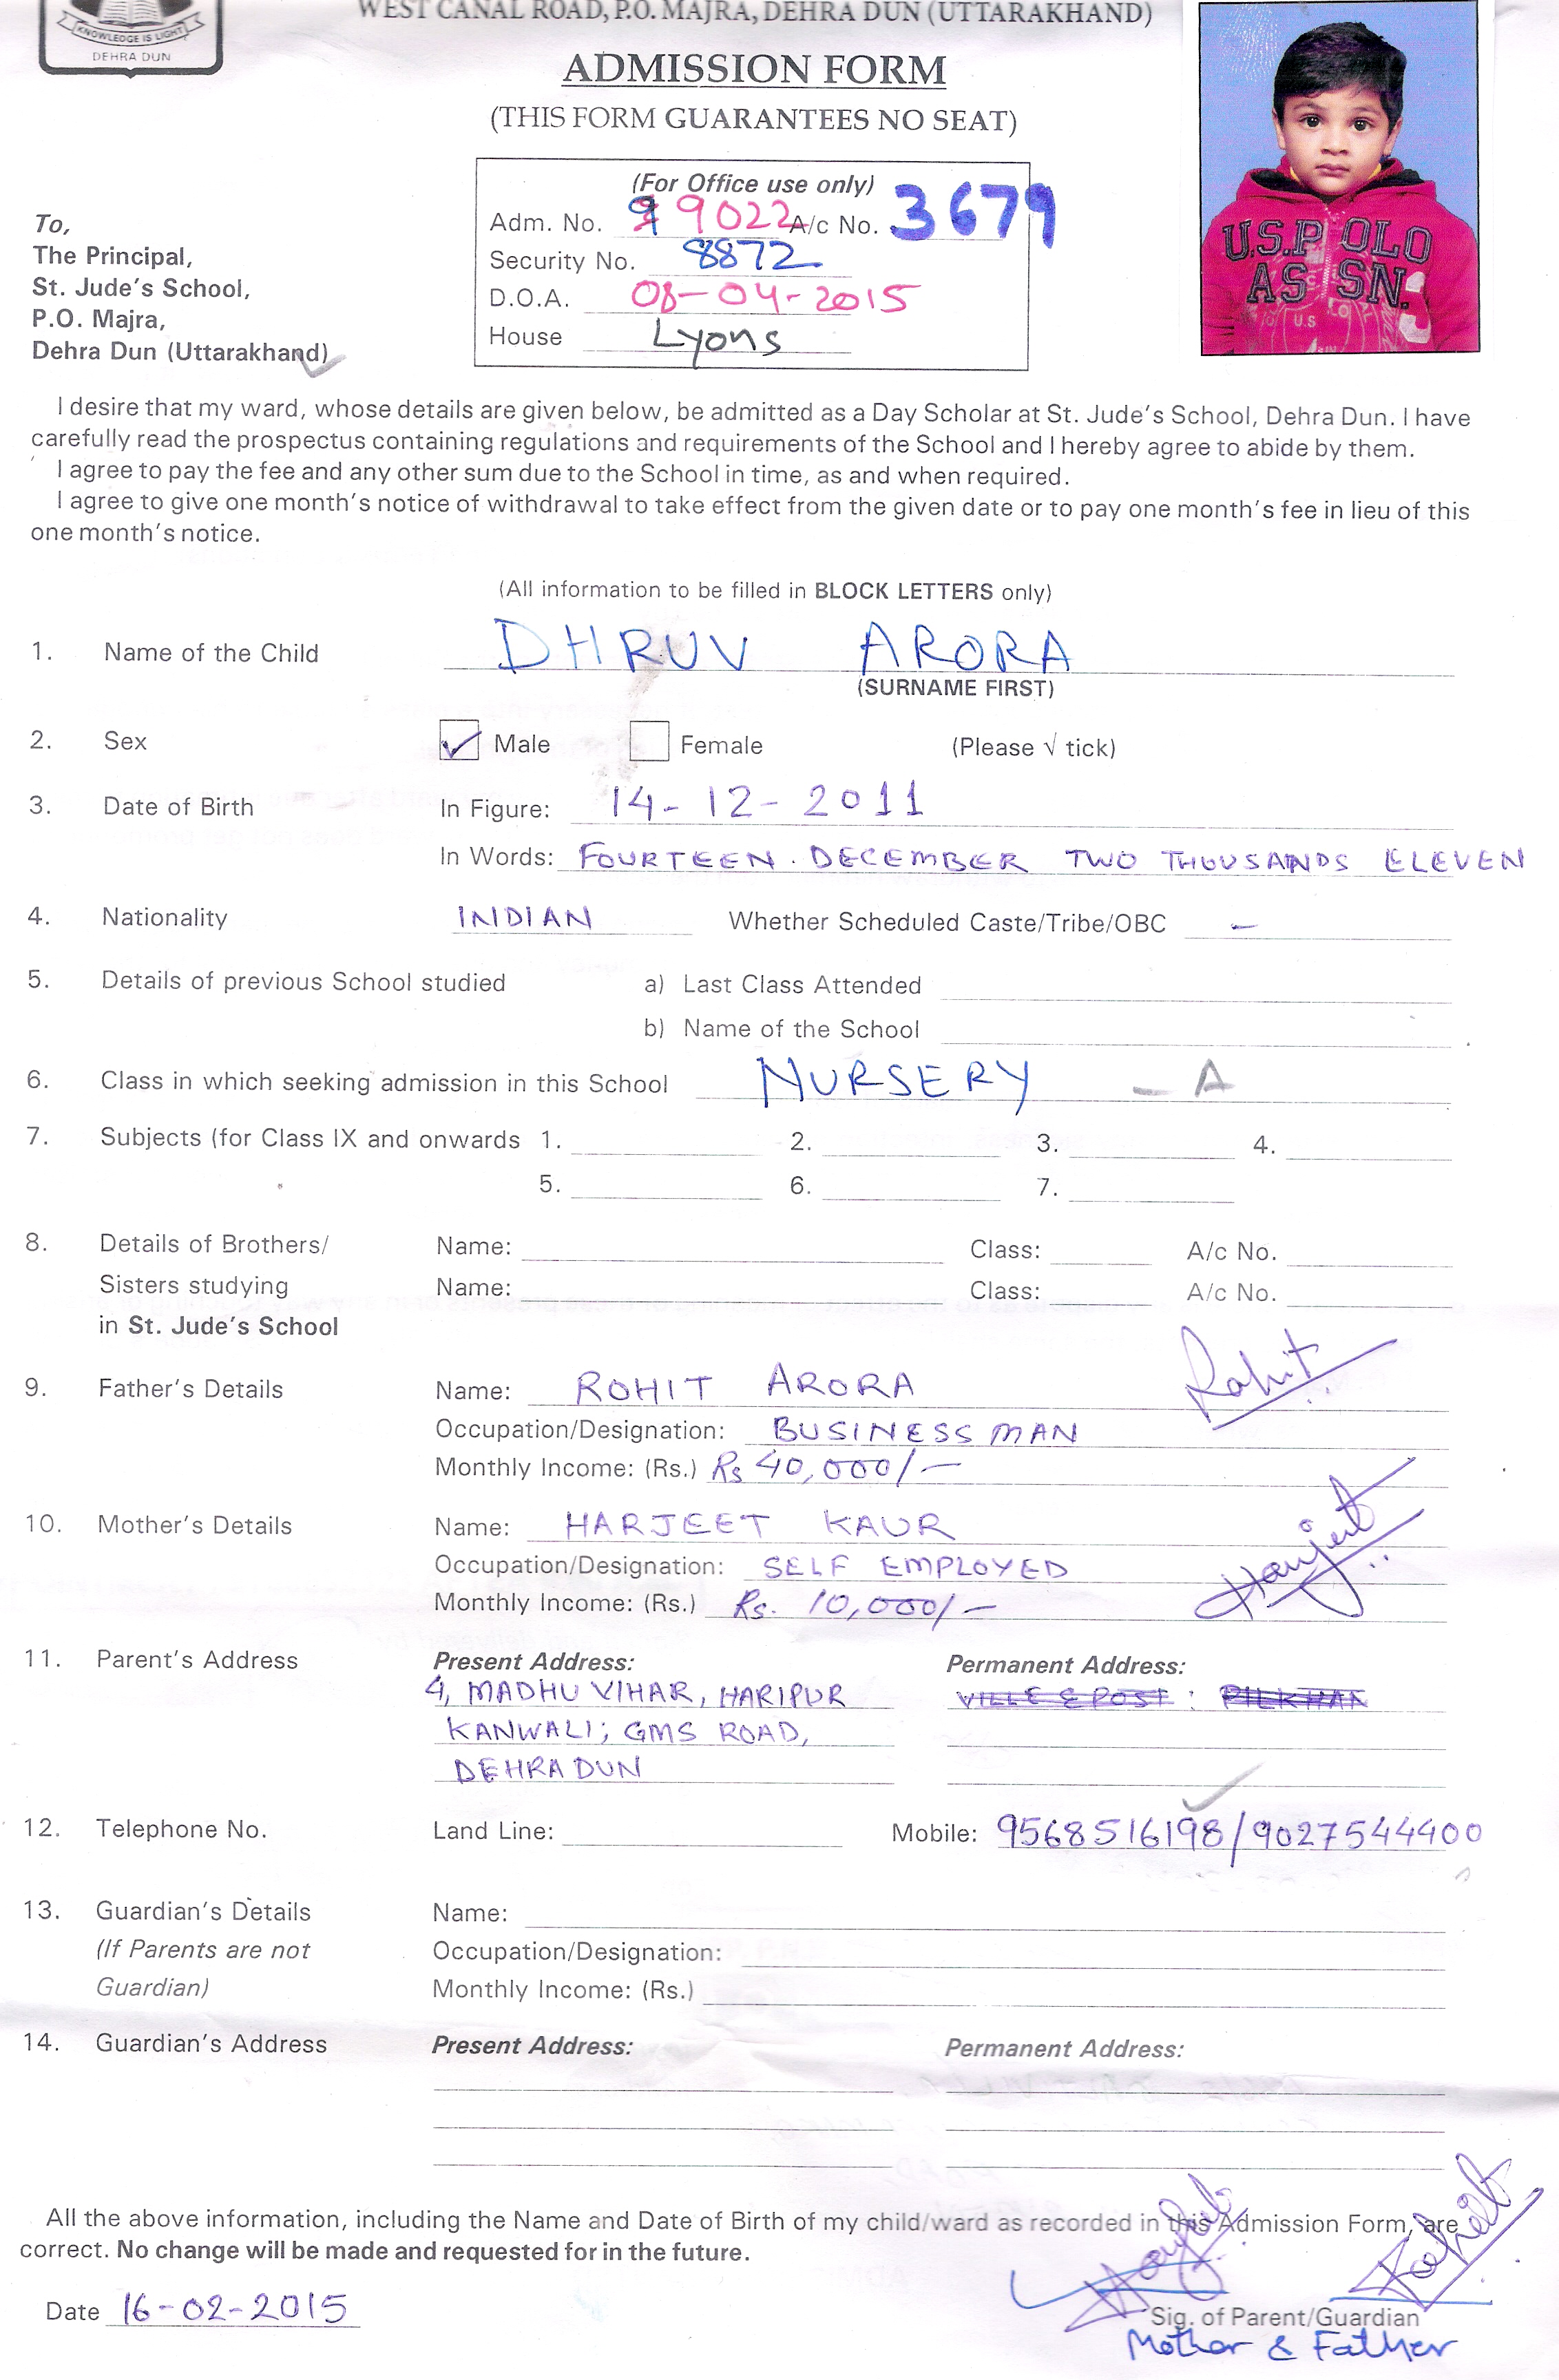 WEST CANAL ROAD, P.O. MAJRA, DEHRA DUN (UTTARAKHAND)
KNOWLEDGE IS LIGHT
DEHRA DUN
ADMISSION FORM
(THIS FORM GUARANTEES NO SEAT)
(For Office use only)
Adm. No. 9 9022 A/c No. 3679
Security No. 8872
D.O.A. 08-04-2015
House Lyons
To,
The Principal,
St. Jude's School,
P.O. Majra,
Dehra Dun (Uttarakhand)
U.S.POLO
ASSN.
U.S
I desire that my ward, whose details are given below, be admitted as a Day Scholar at St. Jude's School, Dehra Dun. I have
carefully read the prospectus containing regulations and requirements of the School and I hereby agree to abide by them.
I agree to pay the fee and any other sum due to the School in time, as and when required.
I agree to give one month's notice of withdrawal to take effect from the given date or to pay one month's fee in lieu of this
one month's notice.
(All information to be filled in BLOCK LETTERS only)
1. Name of the Child DHRUV ARORA
(SURNAME FIRST)
2. Sex ✓ Male Female (Please √ tick)
3. Date of Birth In Figure: 14-12-2011
In Words: FOURTEEN. DECEMBER TWO THOUSANDS ELEVEN
4. Nationality INDIAN Whether Scheduled Caste/Tribe/OBC -
5. Details of previous School studied a) Last Class Attended
b) Name of the School
6. Class in which seeking admission in this School NURSERY - A
7. Subjects (for Class IX and onwards 1. 2. 3. 4.
5. 6. 7.
8. Details of Brothers/ Name: Class: A/c No.
Sisters studying Name: Class: A/c No.
in St. Jude's School
9. Father's Details Name: ROHIT ARORA Rohit
Occupation/Designation: BUSINESS MAN
Monthly Income: (Rs.) Rs 40,000/-
10. Mother's Details Name: HARJEET KAUR Harjeet
Occupation/Designation: SELF EMPLOYED
Monthly Income: (Rs.) Rs. 10,000/-
11. Parent's Address Present Address: Permanent Address:
4, MADHU VIHAR, HARIPUR VILLE & POST : PILKHAN
KANWALI; GMS ROAD,
DEHRADUN
12. Telephone No. Land Line: Mobile: 9568516198/9027544400
13. Guardian's Details Name:
(If Parents are not Occupation/Designation:
Guardian) Monthly Income: (Rs.)
14. Guardian's Address Present Address: Permanent Address:
All the above information, including the Name and Date of Birth of my child/ward as recorded in this Admission Form, are
correct. No change will be made and requested for in the future.
Date 16-02-2015
Sig. of Parent/Guardian
Mother & Father